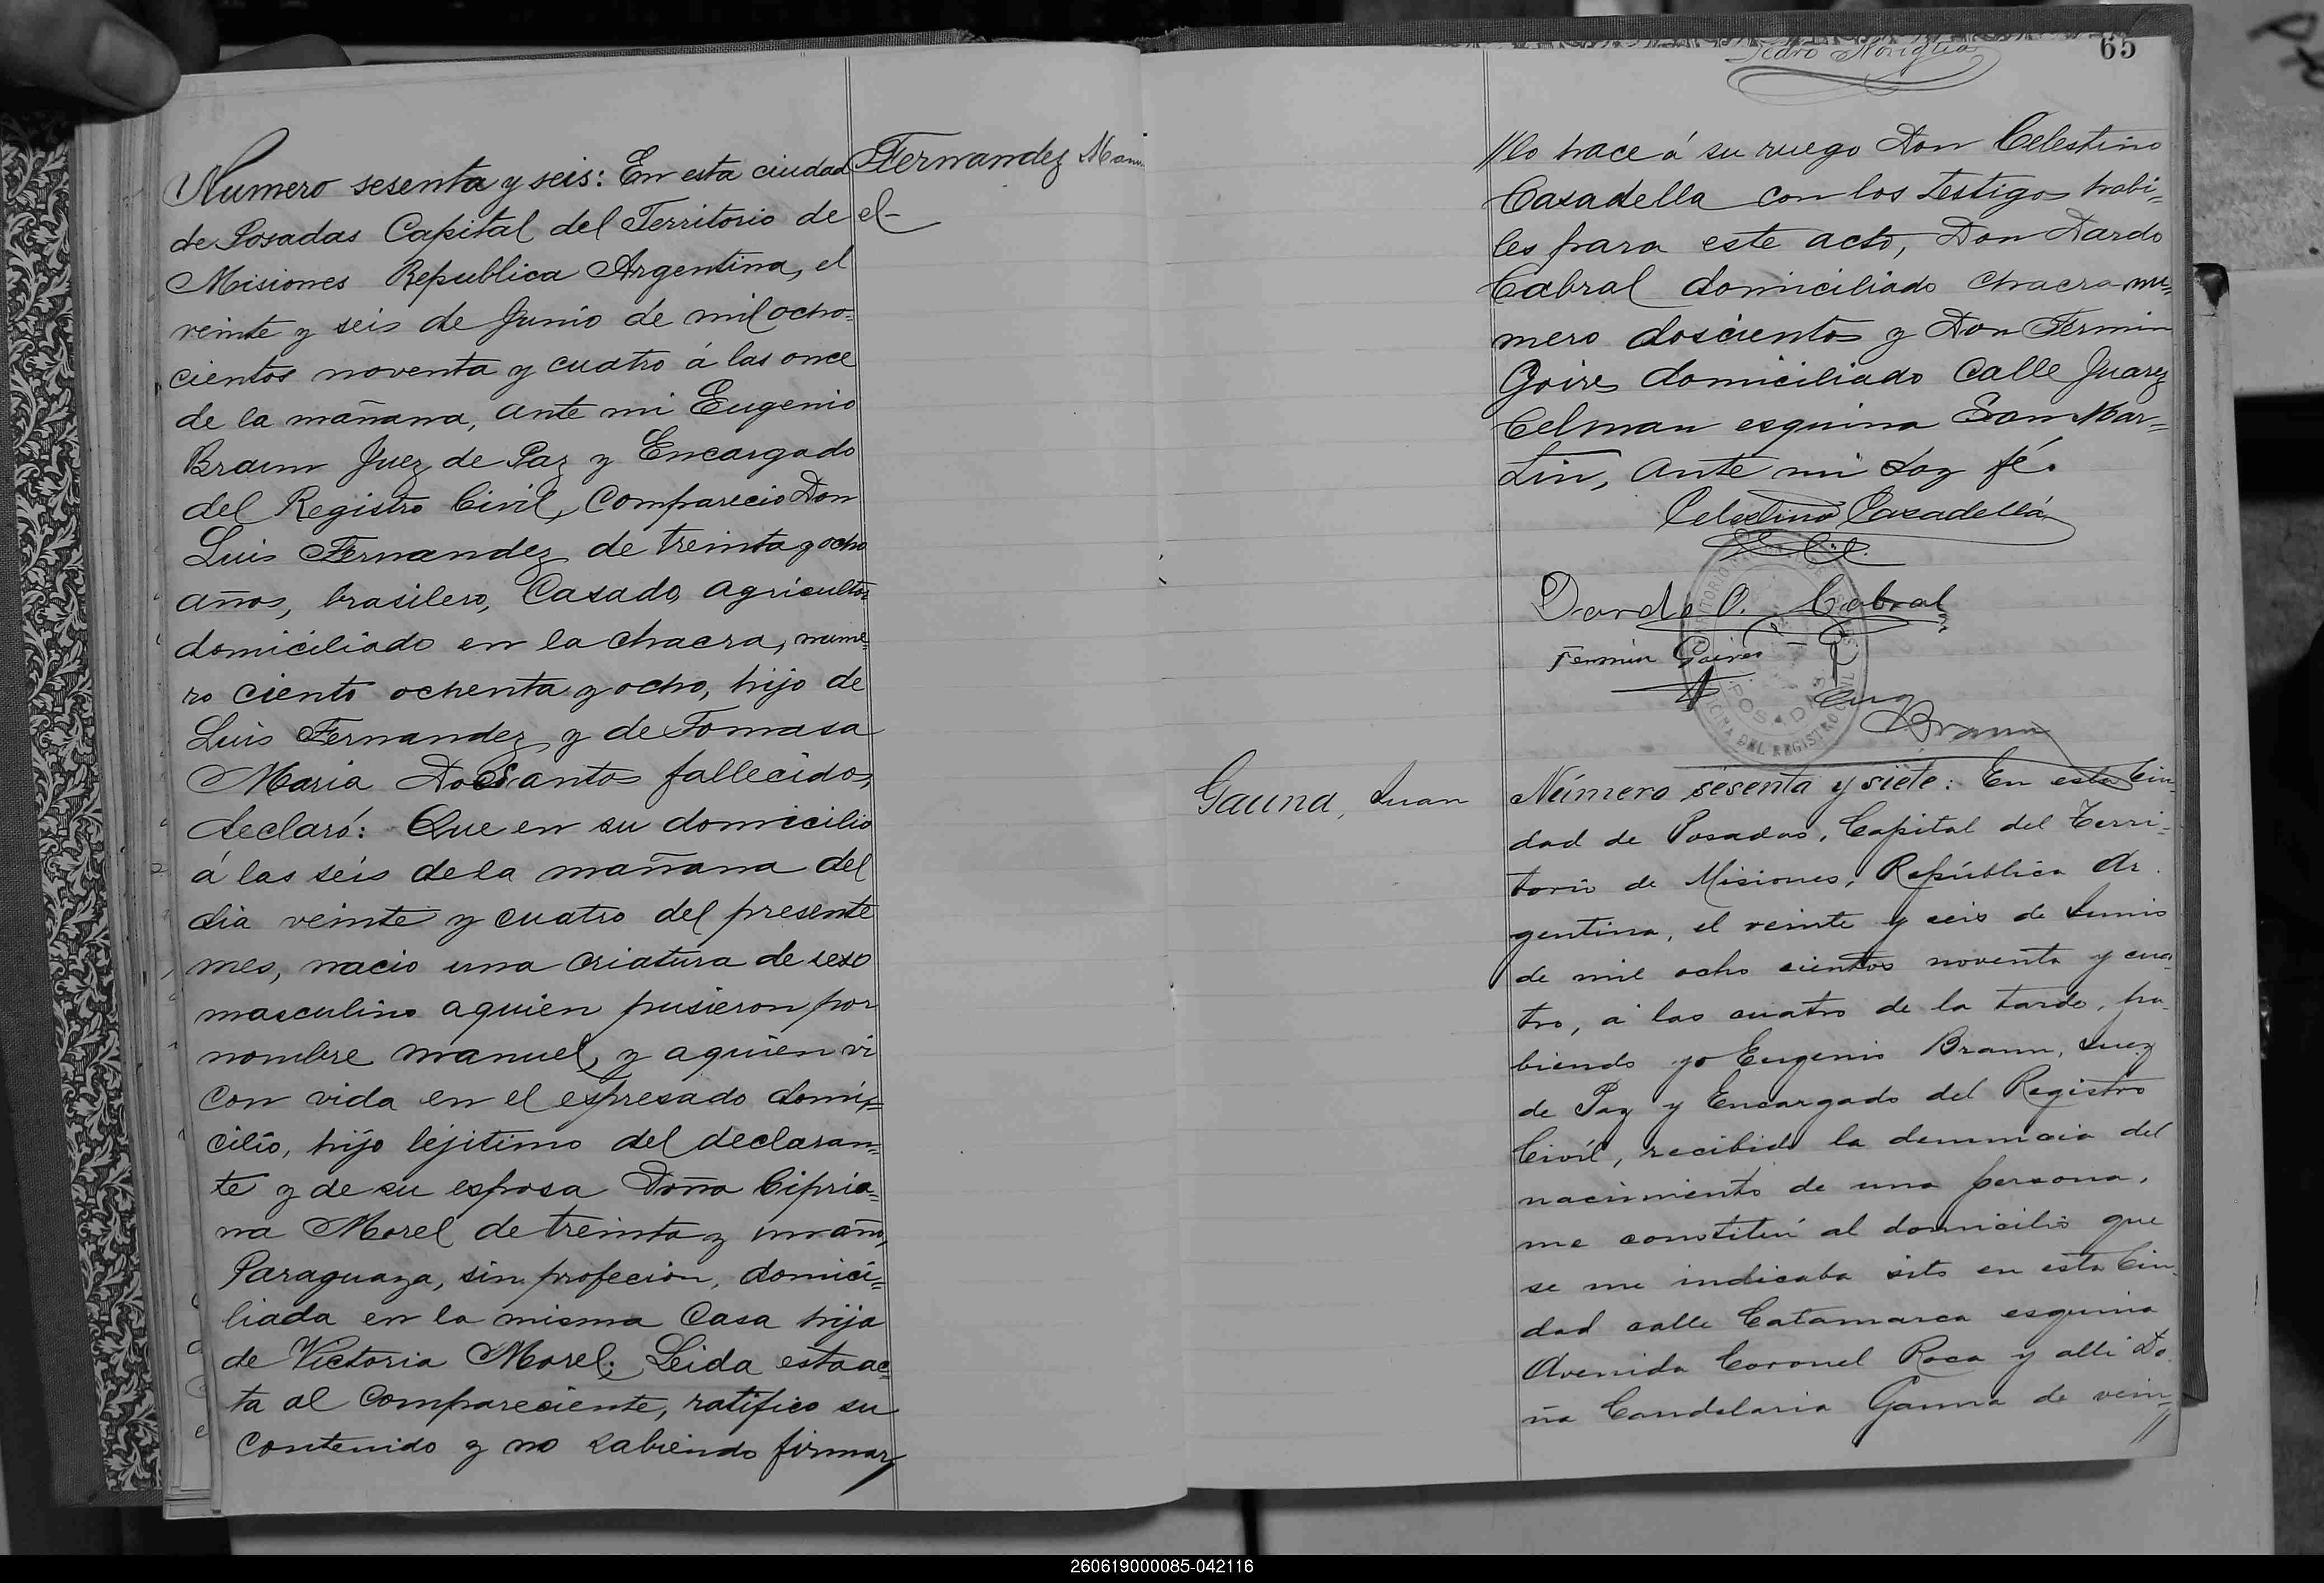 Numero sesenta y seis: En esta ciudad
de Posadas Capital del Territorio de
Misiones Republica Argentina, el
veinte y seis de Junio de mil ocho=
cientos noventa y cuatro á las once
de la mañana, ante mi Eugenio
Braun Juez de Paz y Encargado
del Registro Civil, Comparecio Don
Luis Fernandez de treinta y ocho
años, brasilero, Casado, agricultor
domiciliado en la chacra, nume=
ro ciento ochenta y ocho, hijo de
Luis Fernandez y de Tomasa
Maria Dos Santos fallecidos,
declaró: Que en su domicilio
á las seis de la mañana del
dia veinte y cuatro del presente
mes, nacio una criatura de sexo
masculino a quien pusieron por
nombre manuel, y a quien vi
con vida en el espresado domi=
cilio, hijo lejitimo del declaran=
te y de su esposa Doña Cipria=
na Morel de treinta y un año,
Paraguaya, sin profecion, domici=
liada en la misma Casa hija
de Victoria Morel. Leida esta ac=
ta al Compareciente, ratifico su
contenido y no sabiendo firmar
Fernandez Manu
el-
65
Pedro
//lo hace á su ruego Don Celestino
Casadella con los testigos habi=
les para este acto, Don Dardo
Cabral domiciliado chacra nu=
mero doscientos y Don Fermin
Goires domiciliado Calle Juarez
Celman esquina San Mar=
tin, ante mi doy fé.
Celestino Casadellá
Dardo O. Cabral
Fermin Goires
Eug Braun
POSADAS
OFICINA DEL REGISTRO CIVIL
Gauna, Juan
Número sesenta y siete: En esta Ciu-
dad de Posadas, Capital del Terri-
torio de Misiones, República Ar-
gentina, el veinte y seis de Junio
de mil ocho cientos noventa y cua-
tro, á las cuatro de la tarde, ha-
biendo yo Eugenio Braun, Juez
de Paz y Encargado del Registro
Civil, recibido la denuncia del
nacimiento de una persona,
me constituí al domicilio que
se me indicaba sito en esta Ciu-
dad calle Catamarca esquina
Avenida Coronel Roca y alli Do-
ña Candelaria Gauna de vein-
//
260619000085-042116